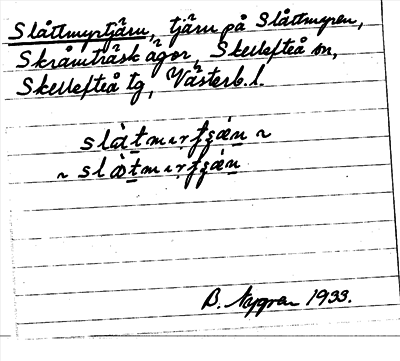 Slåttmyrtjärn, tjärn på Slåttmyren,
Skråmträsk ägor Skellefteå sn,
Skellefteå tg, Västerb. l.
slàtmyrtʂæ̀n ~
~ slòtmyrtʂæ̀n
B. Nygren 1933.